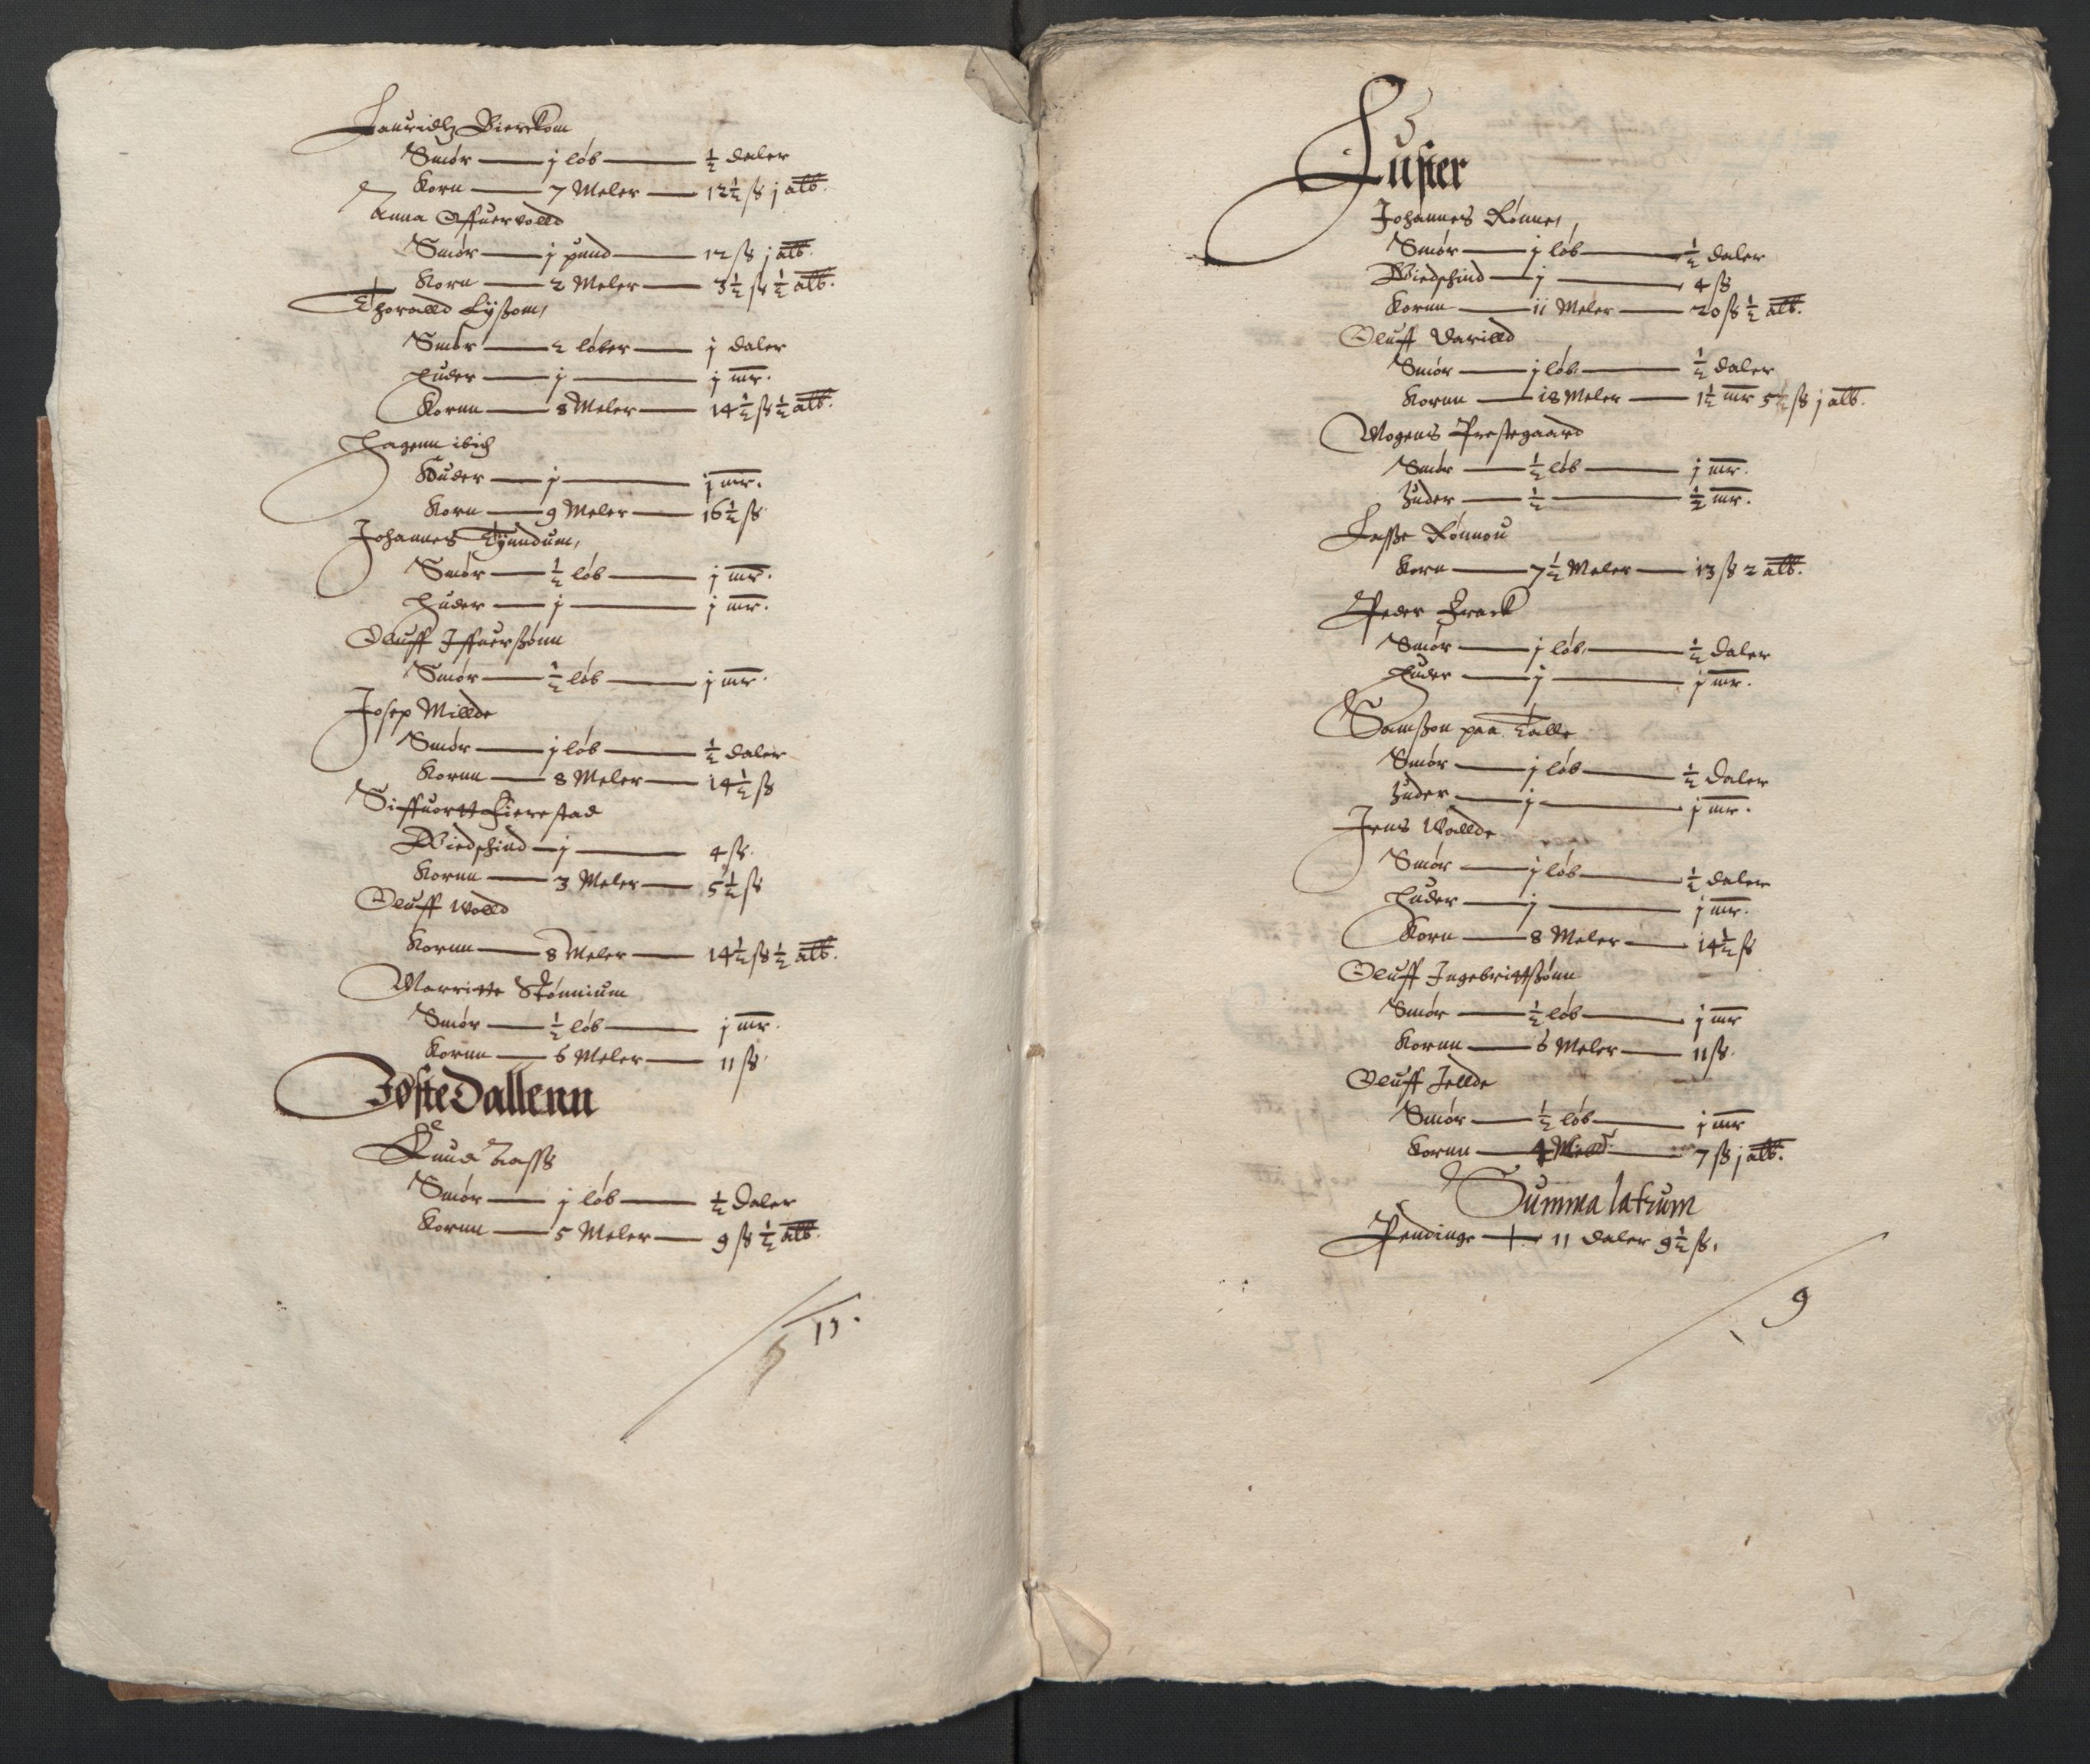 Lauridtz Bierckom
Smør — j løb — ½ daler
Korn — 7 Meler — 12½ ß j alb.
Anna Offueruolld
Smør — j pund — 12 ß j alb.
Korn — 2 Meler — 3½ ß ½ alb.
Thoralld Lyßom,
Smør — 2 løber — j daler
Huder — j — j mr.
Kornn — 8 Meler — 14½ ß ½ alb.
Hagenn ibid
Huder — j — j mr.
Korn — 9 Meler — 16½ ß
Johannes Tynndum,
Smør — ½ løb — j mr.
Huder — j — j mr.
Oluff Iffuerßønn
Smør — ½ løb — j mr.
Josep Millde
Smør — j løb — ½ daler
Kornn — 8 Meler — 14½ ß
Siffuortt Fierestad
Biedschind — j — 4 ß.
Kornn — 3 Meler — 5½ ß
Oluff Wolld
Kornn — 8 Meler — 14½ ß ½ alb.
Marritte Stønnium
Smør — ½ løb — j mr.
Kornn — 6 Meler — 11 ß.
JósteDallenn
Knud
Smør — j løb — ½ daler
Kornn — 5 Meler — 9 ß ½ alb.
Luster
Johannes Rønne,
Smør — j løb — ½ daler
Biedschind — j — 4 ß
Kornn — 11 Meler — 20 ß ½ alb.
Oluff Varilld
Smør — j løb — ½ daler
Kornn — 18 Meler — 1½ mr 5½ ß j alb.
Mogens Prestegaard
Smør — ½ løb — j mr.
Huder — ½ — ½ mr.
Lasse Rønnou
Korn — 7½ Meler — 13 ß 2 alb.
Peder Frack
Smør — j løb — ½ daler
Huder — j — j mr.
Samßon paa Talle
Smør — j løb — ½ daler
Huder — j — j mr.
Jens Wallde
Smør — j løb — ½ daler
Huder — j — j mr.
Korn — 8 Meler — 14½ ß
Oluff Ingebrittßønn
Smør — ½ løb — j mr
Kornn — 6 Meler — 11 ß.
Oluff Jellde
Smør — ½ løb — j mr
Kornn — 4 Meler — 7 ß j alb.
Summa latrum
Pendinge — 11 daler 9½ ß,
9